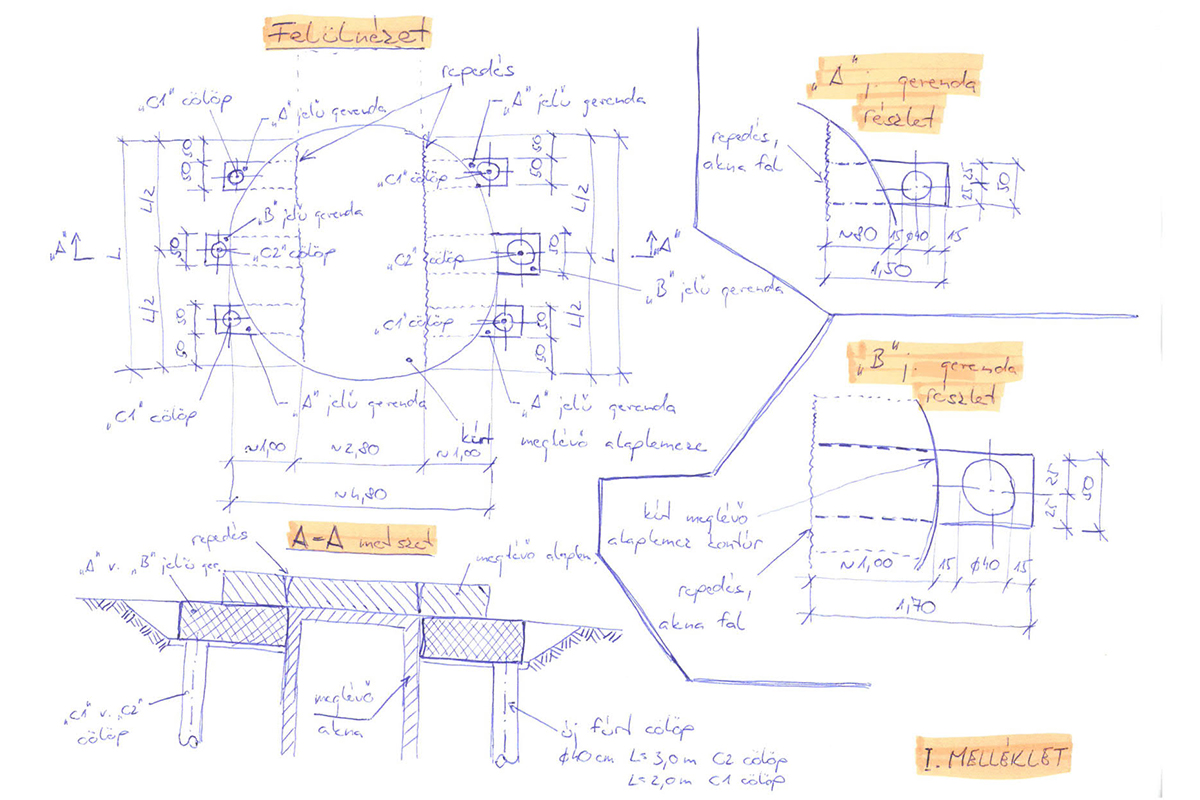 Felülnézet
repedés
„C1" cölöp
„A" jelű gerenda
„A" jelű gerenda
50
50
50
50
„C1" cölöp
L/2
L/2
„B" jelű gerenda
„A"
L
50
„C2" cölöp
„C2" cölöp
50
L
„A"
„B" jelű gerenda
L/2
50
50
„C1" cölöp
50
50
L/2
„C1" cölöp
„A" jelű gerenda
„A" jelű gerenda
kút
meglévő alaplemeze
~1,00
~2,80
~1,00
~4,80
A-A metszet
repedés
„A" v. „B" jelű ger.
meglévő alaplem.
„C1" v. „C2"
cölöp
meglévő
akna
új fúrt cölöp
ø40cm L=3,0m C2 cölöp
L=2,0m C1 cölöp
„A" j. gerenda
részlet
repedés,
akna fal
25 25
50
~80
15
ø40
15
1,50
„B" j. gerenda
részlet
25 25
50
kút meglévő
alaplemez kontúr
repedés,
akna fal
~1,00
15
ø40
15
1,70
I. MELLÉKLET